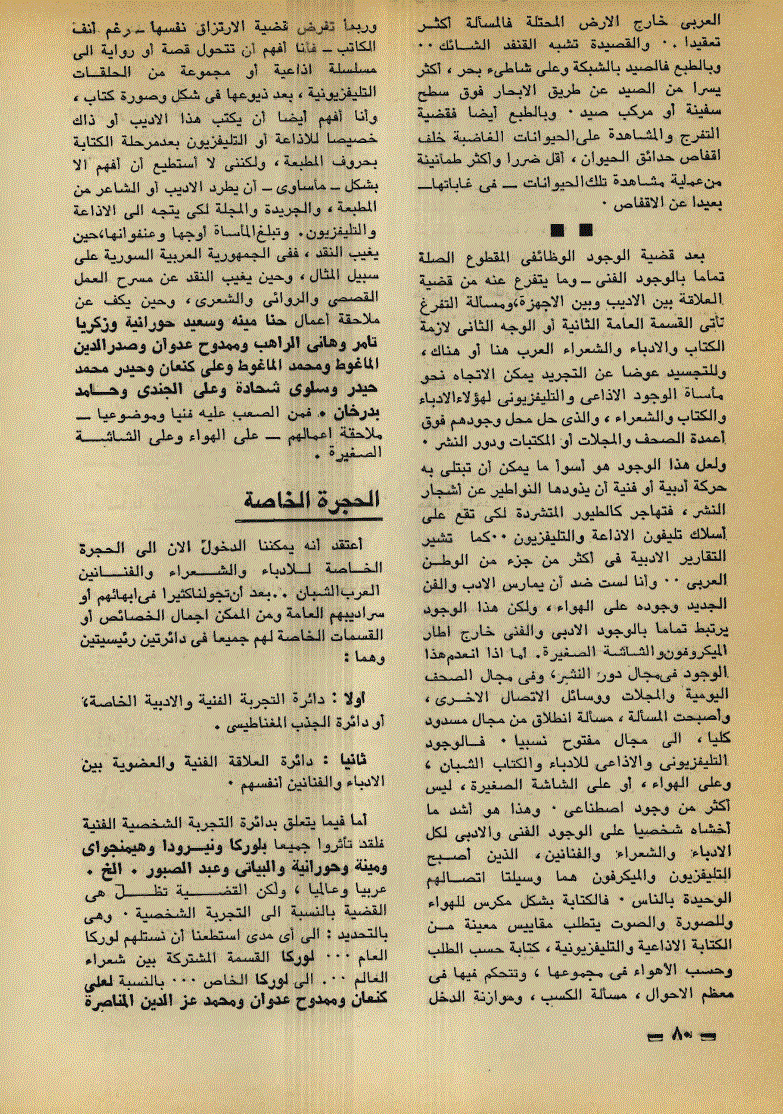 العربى خارج الارض المحتلة فالمسألة أكثر
تعقيدا ٠٠ والقصيدة تشبه القنفد الشائك ٠٠
وبالطبع فالصيد بالشبكة وعلى شاطىء بحر ، أكثر
يسرا من الصيد عن طريق الابحار فوق سطح
سفينة أو مركب صيد ٠ وبالطبع أيضا فقضية
التفرج والمشاهدة على الحيوانات الغاضبة خلف
اقفاص حدائق الحيوان ، أقل ضررا وأكثر طمانينة
من عملية مشاهدة تلك الحيوانات ــ فى غاباتها ــ
بعيدا عن الاقفاص ٠
■ ■
بعد قضية الوجود الوظائفى المقطوع الصلة
تماما بالوجود الفنى ــ وما يتفرع عنه من قضية
العلاقة بين الاديب وبين الاجهزة، ومسألة التفرغ
تأتى القسمة العامة الثانية أو الوجه الثانى لازمة
الكتاب والادباء والشعراء العرب هنا أو هناك ،
وللتجسيد عوضا عن التجريد يمكن الاتجاه نحو
مأساة الوجود الاذاعى والتليفزيونى لهؤلاء الادباء
والكتاب والشعراء ، والذى حل محل وجودهم فوق
أعمدة الصحف والمجلات أو المكتبات ودور النشر ٠
ولعل هذا الوجود هو أسوأ ما يمكن أن تبتلى به
حركة أدبية أو فنية أن يذودها النواطير عن أشجار
النشر ، فتهاجر كالطيور المتشردة لكى تقع على
أسلاك تليفون الاذاعة والتليفزيون ٠٠ كما تشير
التقارير الادبية فى أكثر من جزء من الوطن
العربى ٠٠ وأنا لست ضد أن يمارس الادب والفن
الجديد وجوده على الهواء ، ولكن هذا الوجود
يرتبط تماما بالوجود الادبى والفنى خارج اطار
الميكروفون والشاشة الصغيرة . أما اذا انعدم هذا
الوجود فى مجال دور النشر ، وفى مجال الصحف
اليومية والمجلات ووسائل الاتصال الاخرى ،
وأصبحت المسألة ، مسألة انطلاق من مجال مسدود
كليا ، الى مجال مفتوح نسبيا ٠ فالوجود
التليفزيونى والاذاعى للادباء والكتاب الشبان ،
وعلى الهواء ، أو على الشاشة الصغيرة ، ليس
أكثر من وجود اصطناعى ٠ وهذا هو أشد ما
أخشاه شخصيا على الوجود الفنى والادبى لكل
الادباء والشعراء والفنانين ، الذين أصبح
التليفزيون والميكرفون هما وسيلتا اتصالهم
الوحيدة بالناس ٠ فالكتابة بشكل مكرس للهواء
وللصورة والصوت يتطلب مقاييس معينة من
الكتابة الاذاعية والتليفزيونية ، كتابة حسب الطلب
وحسب الاهواء فى مجموعها ، وتتحكم فيها فى
معظم الاحوال ، مسألة الكسب ، وموازنة الدخل
وربما تفرض قضية الارتزاق نفسها ــ رغم أنف
الكاتب ــ فأنا أفهم أن تتحول قصة أو رواية الى
مسلسلة اذاعية أو مجموعة من الحلقات
التليفزيونية ، بعد ذيوعها فى شكل وصورة كتاب ،
وأنا أفهم أيضا أن يكتب هذا الاديب أو ذاك
خصيصا للاذاعة أو التليفزيون بعد مرحلة الكتابة
بحروف المطبعة ، ولكننى لا أستطيع أن أفهم الا
بشكل ــ مأساوى ــ أن يطرد الاديب أو الشاعر من
المطبعة ، والجريدة والمجلة لكى يتجه الى الاذاعة
والتليفزيون . وتبلغ المأساة أوجها وعنفوانها، حين
يغيب النقد ، ففى الجمهورية العربية السورية على
سبيل المثال ، وحين يغيب النقد عن مسرح العمل
القصصى والروائى والشعرى ، وحين يكف عن
ملاحقة أعمال حنا مينه وسعيد حورانية وزكريا
تامر وهانى الراهب وممدوح عدوان وصدر الدين
الماغوط ومحمد الماغوط وعلى كنعان وحيدر محمد
حيدر وسلوى شحادة وعلى الجندى وحامد
بدرخان . فمن الصعب عليه فنيا وموضوعيا ــ
ملاحقة أعمالهم ــ على الهواء وعلى الشاشة
الصغيرة .
الحجرة الخاصة
أعتقد أنه يمكننا الدخول الان الى الحجرة
الخاصة للادباء والشعراء والفنانين
العرب الشبان . . بعد أن تجولنا كثيرا فى ابهائهم أو
سراديبهم العامة ومن الممكن اجمال الخصائص أو
القسمات الخاصة لهم جميعا فى دائرتين رئيسيتين
وهما :
أولا : دائرة التجربة الفنية والادبية الخاصة ،
أو دائرة الجذب المغناطيسى .
ثانيا : دائرة العلاقة الفنية والعضوية بين
الادباء والفنانين أنفسهم ٠
أما فيما يتعلق بدائرة التجربة الشخصية الفنية
فلقد تأثروا جميعا بلوركا ونيرودا وهيمنجواى
ومينة وحورانية والبياتى وعبد الصبور . الخ .
عربيا وعالميا ، ولكن القضية تظل هى
القضية بالنسبة الى التجربة الشخصية ٠ وهى
بالتحديد : الى أى مدى استطعنا أن نستلهم لوركا
العام ٠٠٠ لوركا القسمة المشتركة بين شعراء
العالم ٠٠. الى لوركا الخاص ٠٠٠ بالنسبة لعلى
كنعان وممدوح عدوان ومحمد عز الدين المناصرة
ــ ٨٠ ــ